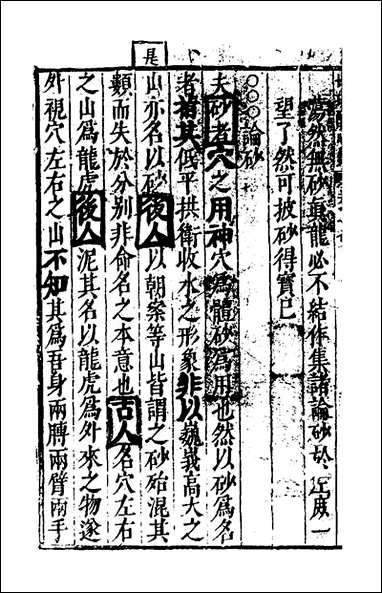 蕩然無砂真龍必不結作集諸論砂於左庶一
望了然可披砂得寶已
○○○論砂
夫砂者穴之用神穴為體砂為用也然以砂為名
者着其低平拱衛收水之形象非以巍峩高大之
山亦名以砂後人以朝案等山皆謂之砂殆混其
顙而失於分别非命名之本意也古人名穴左右
之山爲龍虎後人泥其名以龍虎爲外來之物遂
外視穴左右之山不知其爲吾身兩膊兩臂兩手
是